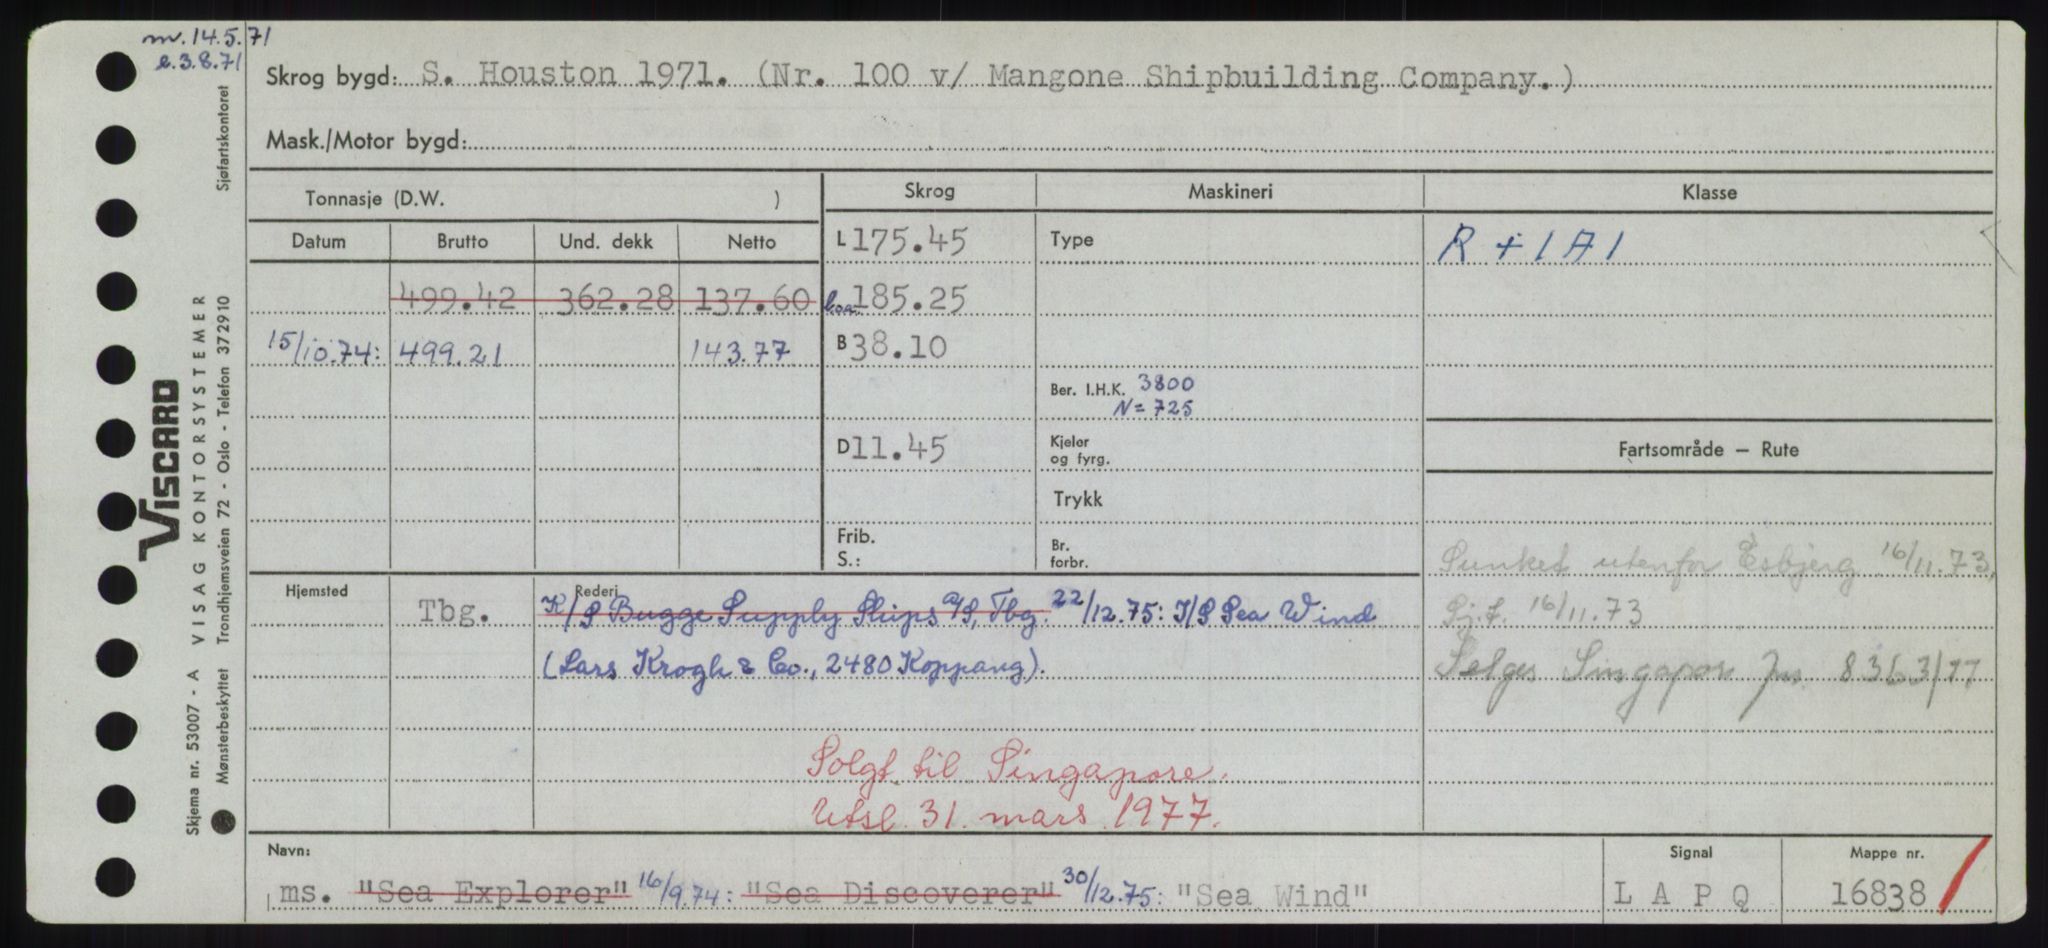 m. 14.5.71
e. 3.8.71
Skrog bygd: S. Houston 1971. (Nr. 100 v/ Mangone Shipbuilding Company.)
Mask./Motor bygd:
Tonnasje (D.W. )
Skrog
Maskineri
Klasse
Datum Brutto Und. dekk Netto
L 175.45
Type
R + 1 A 1
499.42 362.28 137.60
l.oa. 185.25
15/10.74: 499.21 143.77
B 38.10
Ber. I.H.K. 3800
N = 725
D 11.45
Kjeler
og fyrg.
Fartsområde – Rute
Trykk
Frib.
S.:
Br.
forbr.
Sunket utenfor Esbjerg 16/11.73.
Sj.f. 16/11.73
Selges Singapore Jns. 8363/77
Hjemsted
Rederi
Tbg.
K/S Bugge Supply Ships A/S, Tbg. 22/12.75: I/S Sea Wind
(Lars Krogh & Co., 2480 Koppang).
Solgt til Singapore.
Utsl. 31. mars 1977.
Navn:
Signal
Mappe nr.
ms. "Sea Explorer" 16/9.74: "Sea Discoverer" 30/12.75: "Sea Wind"
L A P Q
16838
VISCARD
Skjema nr. 53007 - A VISAG KONTORSYSTEMER
Mønsterbeskyttet Trondhjemsveien 72 - Oslo - Telefon 372910 Sjøfartskontoret